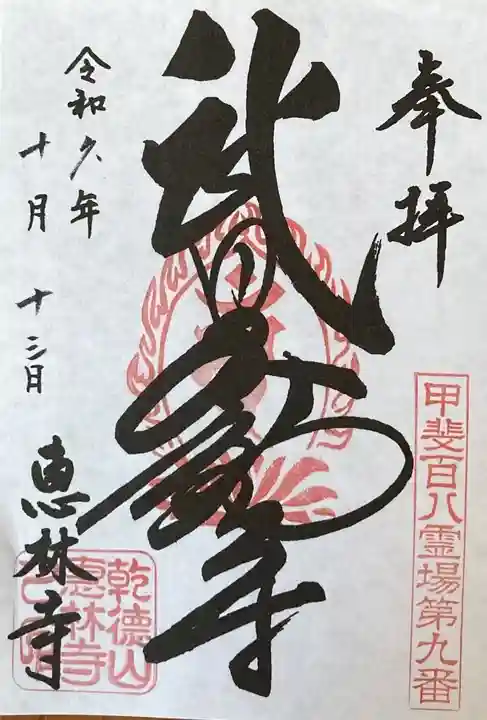 奉拝
甲斐百八霊場第九番
武田不動尊
令和六年
十月 十三日
恵林寺
乾德山
恵林寺